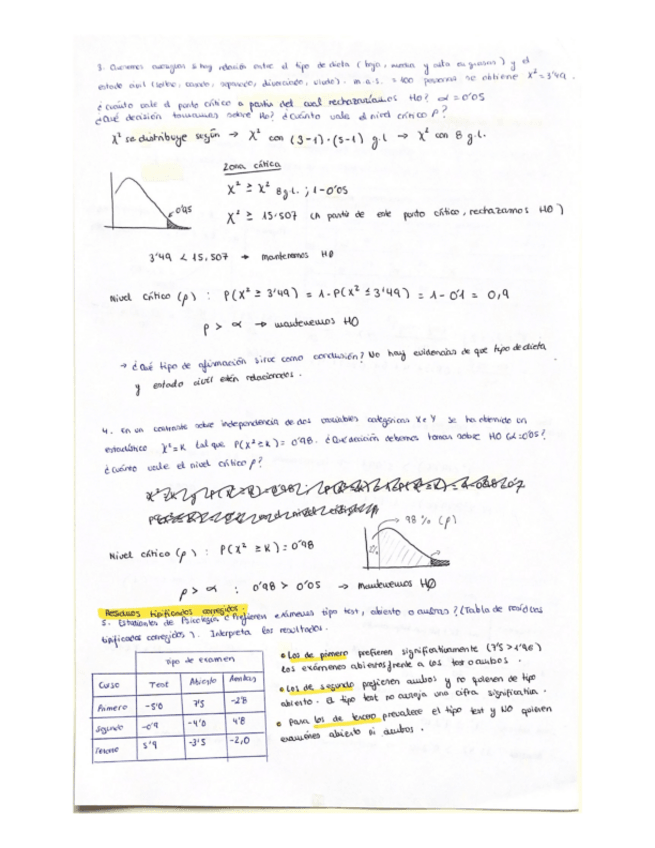 3. Queremos averiguar si hay relación entre el tipo de dieta (baja, media y alta en grasas) y el
estado civil (soltero, casado, separado, divorciado, viudo). m.a.s. = 400 personas se obtiene X²=3'49.
¿Cuánto vale el punto crítico a partir del cual rechazaríamos H0? α=0'05
¿Qué decisión tomaremos sobre H0? ¿Cuánto vale el nivel crítico P?
X² se distribuye según → X² con (3-1)·(5-1) g.l. → X² con 8 g.l.
Zona crítica
X² ≥ X² 8 g.l. ; 1-0'05
X² ≥ 15.507 (A partir de este punto crítico, rechazamos H0)
3'49 < 15.507 → mantenemos H0
Nivel crítico (p) : P(X² ≥ 3'49) = 1-P(X² ≤ 3'49) = 1-0'1 = 0,9
p > α → mantenemos H0
→ ¿Qué tipo de afirmación sirve como conclusión? No hay evidencias de que tipo de dieta
y estado civil estén relacionados.
4. En un contraste sobre independencia de dos variables categóricas X e Y se ha obtenido un
estadístico X²=K tal que P(X²≥K) = 0'98. ¿Qué decisión debemos tomar sobre H0 (α=0'05)?
¿Cuánto vale el nivel crítico P?
98% (p)
Nivel crítico (p) : P(X² ≥ K) = 0'98
p > α : 0'98 > 0'05 → mantenemos H0
Residuos tipificados corregidos.
5. Estudiantes de Psicología ¿Prefieren exámenes tipo test, abierto o ambos? (Tabla de residuos
tipificados corregidos). Interpreta los resultados.
tipo de examen
Curso Test Abierto Ambos
Primero -5'0 7'5 -2'8
Segundo -0'9 -4'0 4'8
Tercero 5'9 -3'5 -2,0
• Los de primero prefieren significativamente (7'5 > 1'96)
los exámenes abiertos frente a los test o ambos.
• Los de segundo prefieren ambos y no quieren de tipo
abierto. El tipo test no arroja una cifra significativa.
• Para los de tercero prevalece el tipo test y NO quieren
exámenes abierto ni ambos.